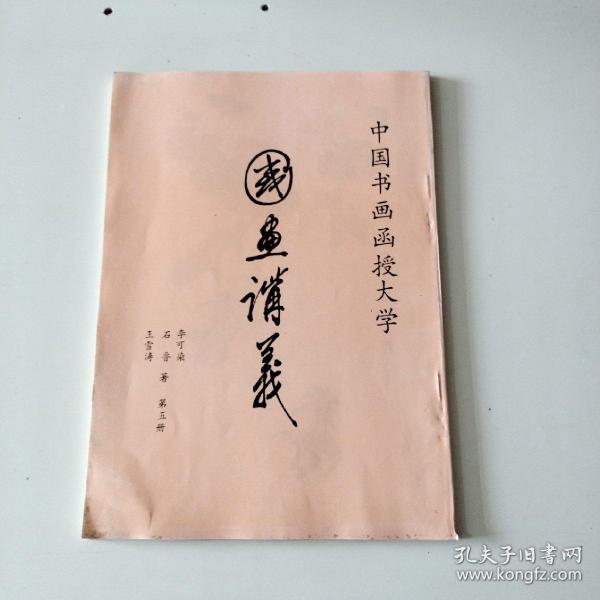 中国书画函授大学
國画講義
李可染
石鲁 著
王雪涛
第五册
孔夫子旧书网
www.kongfz.com